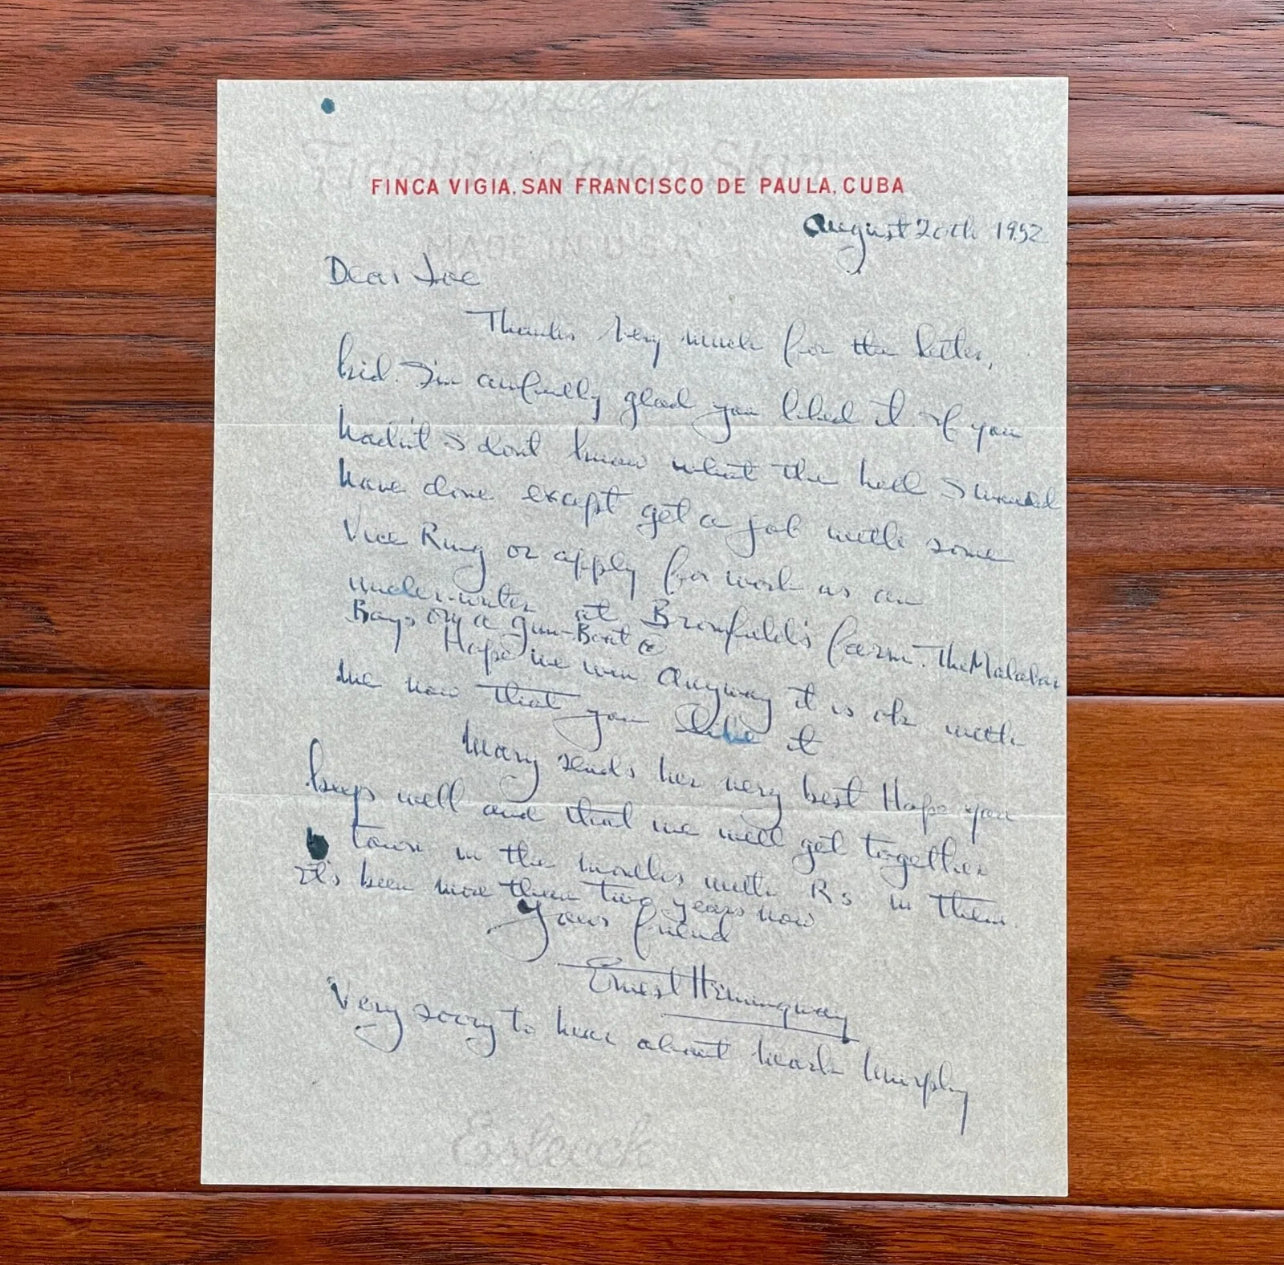 Esleeck
Fidelity Onion Skin
FINCA VIGIA, SAN FRANCISCO DE PAULA, CUBA
August 20th 1952
MADE IN U.S.A.
Dear Joe
Thanks very much for the letter,
kid. I'm awfully glad you liked it if you
hadn't I dont know what the hell I would
have done except get a job with some
Vice Ring or apply for work as an
under-writer at Bromfield's farm. The Malabar
Bays on a gun-Boat
Hope we win Anyway it is ok with
me now that you like it
Mary sends her very best Hope you
keep well and that we will get together
town in the months with Rs in them.
it's been more than two years now
Yours friend
Ernest Hemingway
Very sorry to hear about Mark Murphy
Esleeck